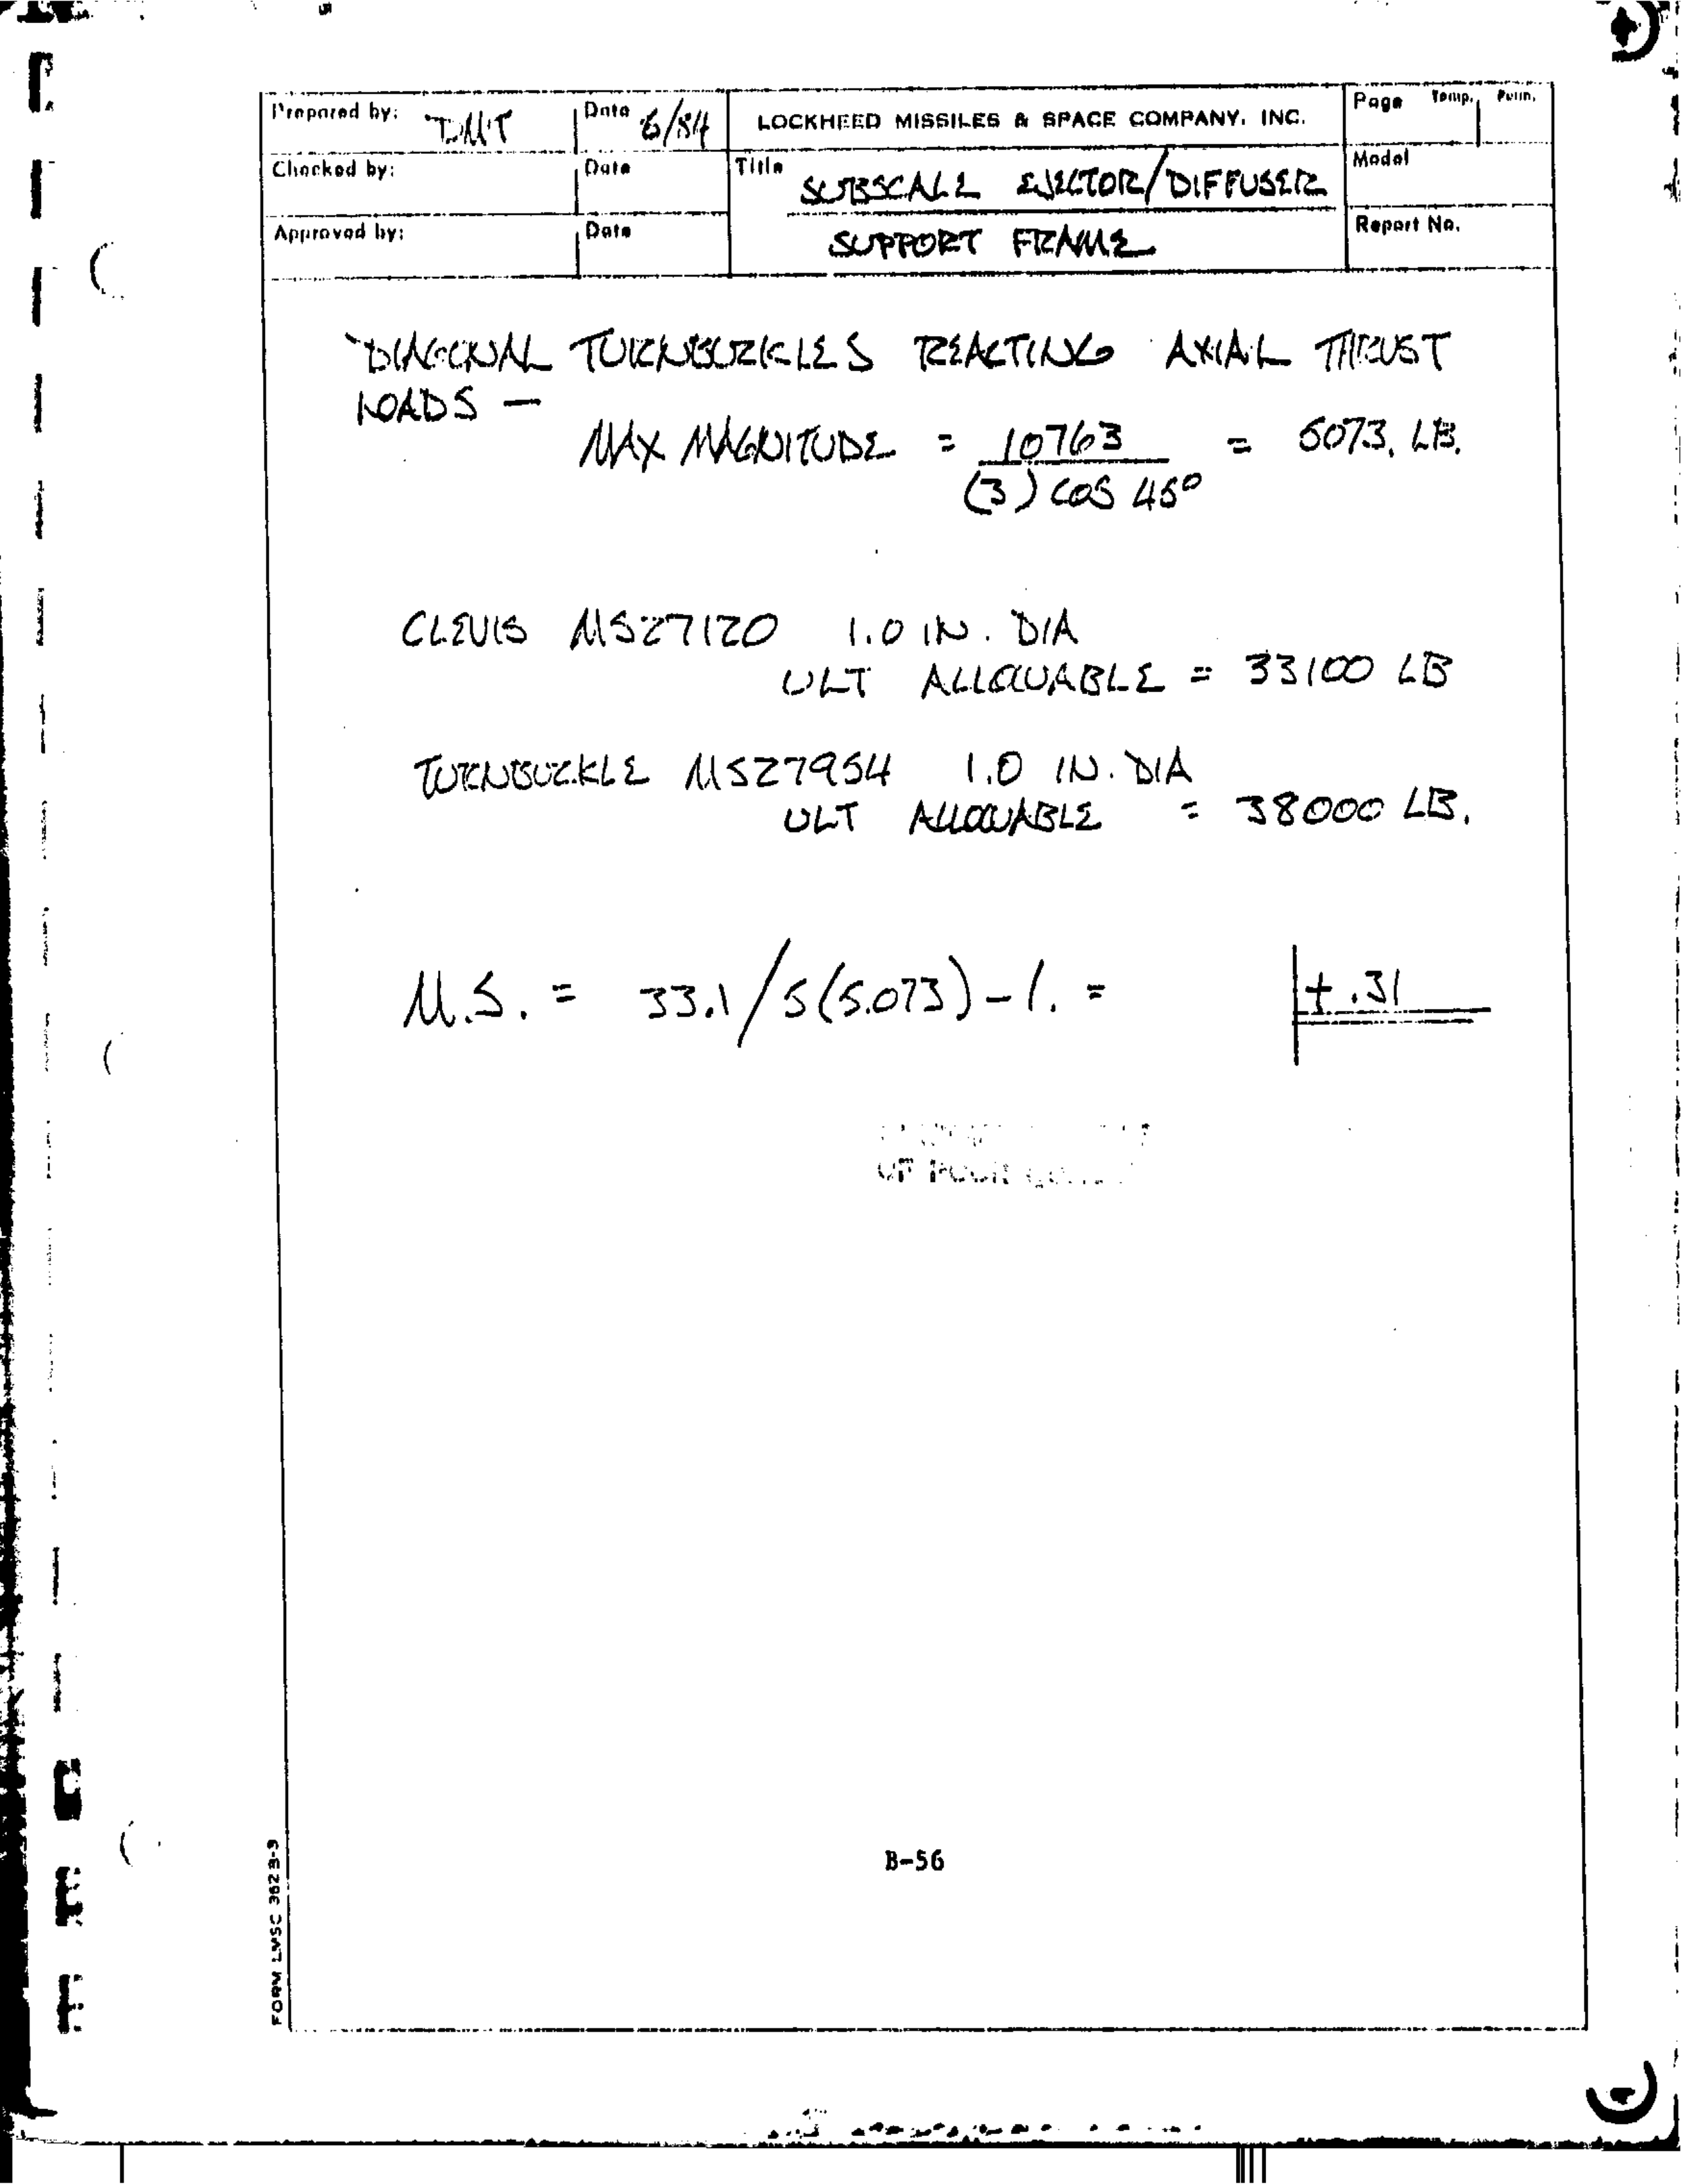 Prepared by: DMT Date 6/84 LOCKHEED MISSILES & SPACE COMPANY, INC. Page Temp. Perm.
Checked by: Date Title SUBSCALE EJECTOR/DIFFUSER Model
Approved by: Date SUPPORT FRAME Report No.
DIAGONAL TURNBUCKLES REACTING AXIAL THRUST
LOADS —
MAX MAGNITUDE = 10763 = 5073. LB.
(3) COS 45°
CLEVIS MS27120 1.0 IN. DIA
ULT ALLOWABLE = 33100 LB
TURNBUCKLE MS27954 1.0 IN. DIA
ULT ALLOWABLE = 38000 LB.
M.S. = 33.1/5(5.073)-1. = +.31
OF POOR
B-56
FORM LMSC 3623-3